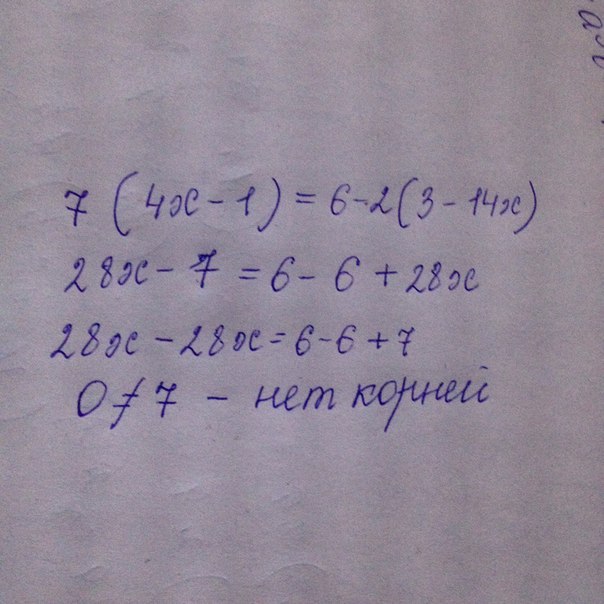 7 (4x - 1) = 6 - 2(3 - 14x)
28x - 7 = 6 - 6 + 28x
28x - 28x = 6 - 6 + 7
0 ≠ 7 - нет корней